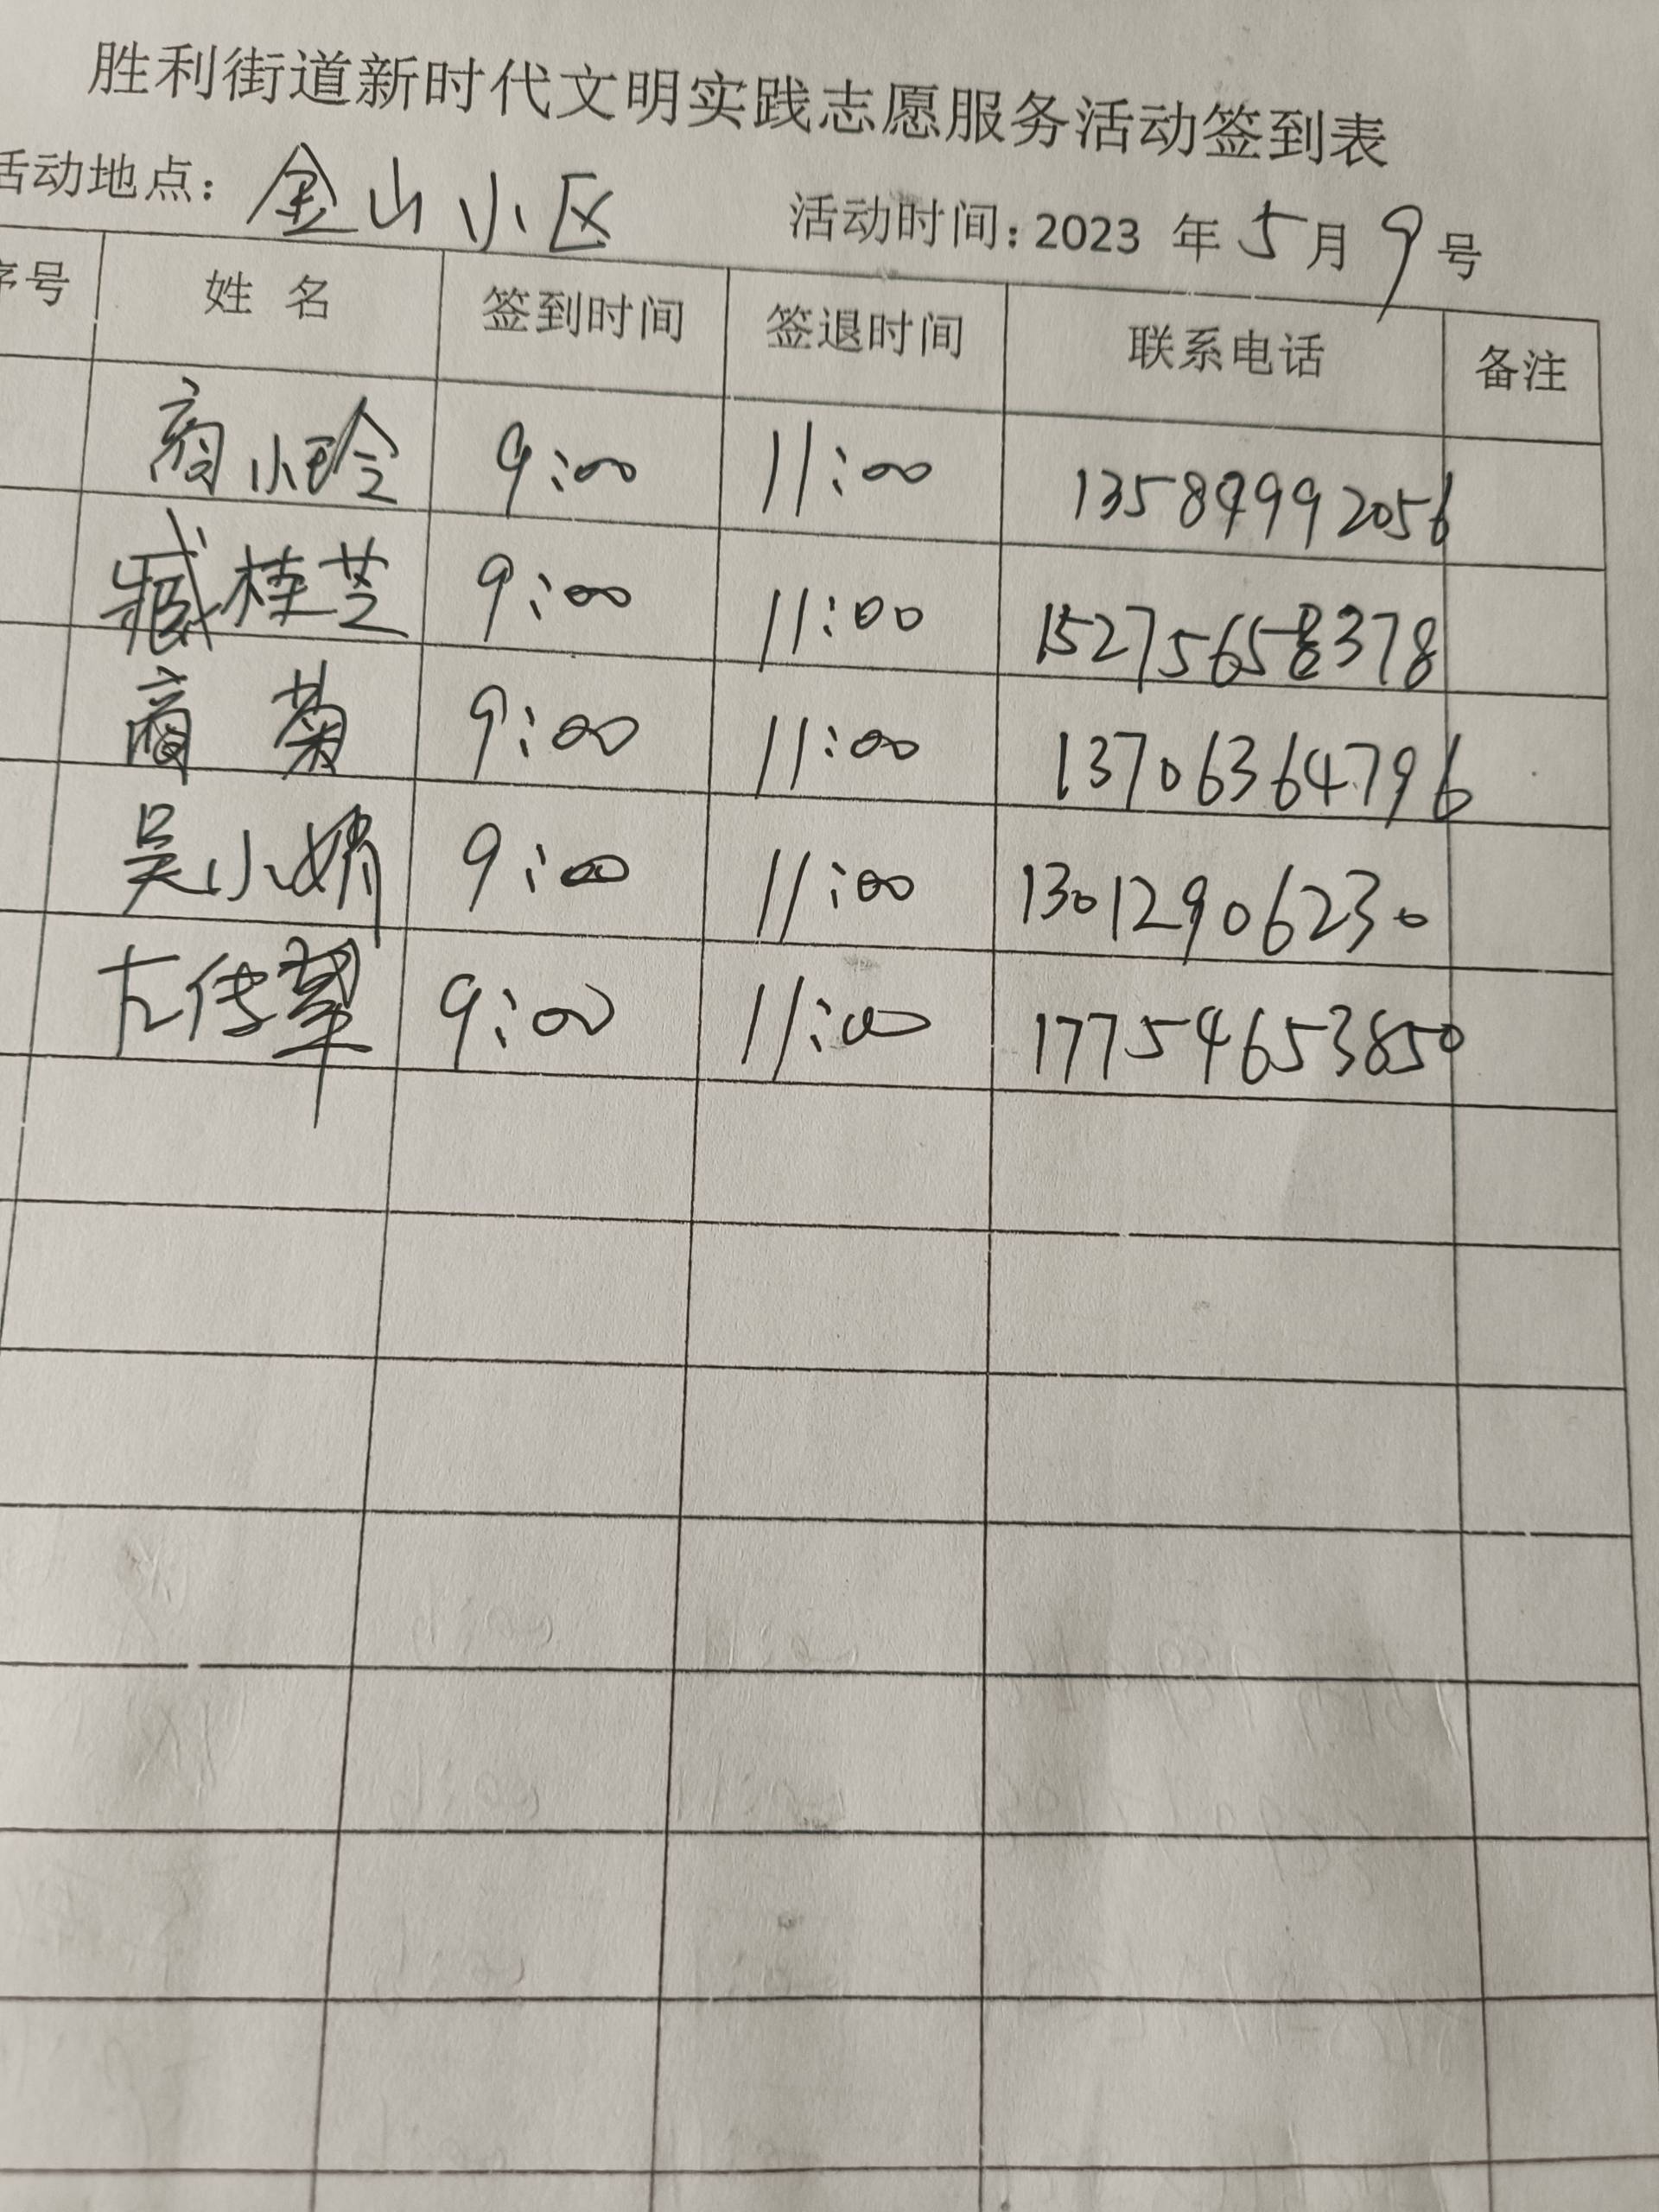 胜利街道新时代文明实践志愿服务活动签到表
活动地点：金山小区 活动时间：2023 年 5 月 9 号
序号 姓 名 签到时间 签退时间 联系电话 备注
商小玲 9:00 11:00
臧桂芝 9:00 11:00 15275658378
商菊 9:00 11:00 13706364796
吴小婧 9:00 11:00 13012906230
左传翠 9:00 11:00 17754653850